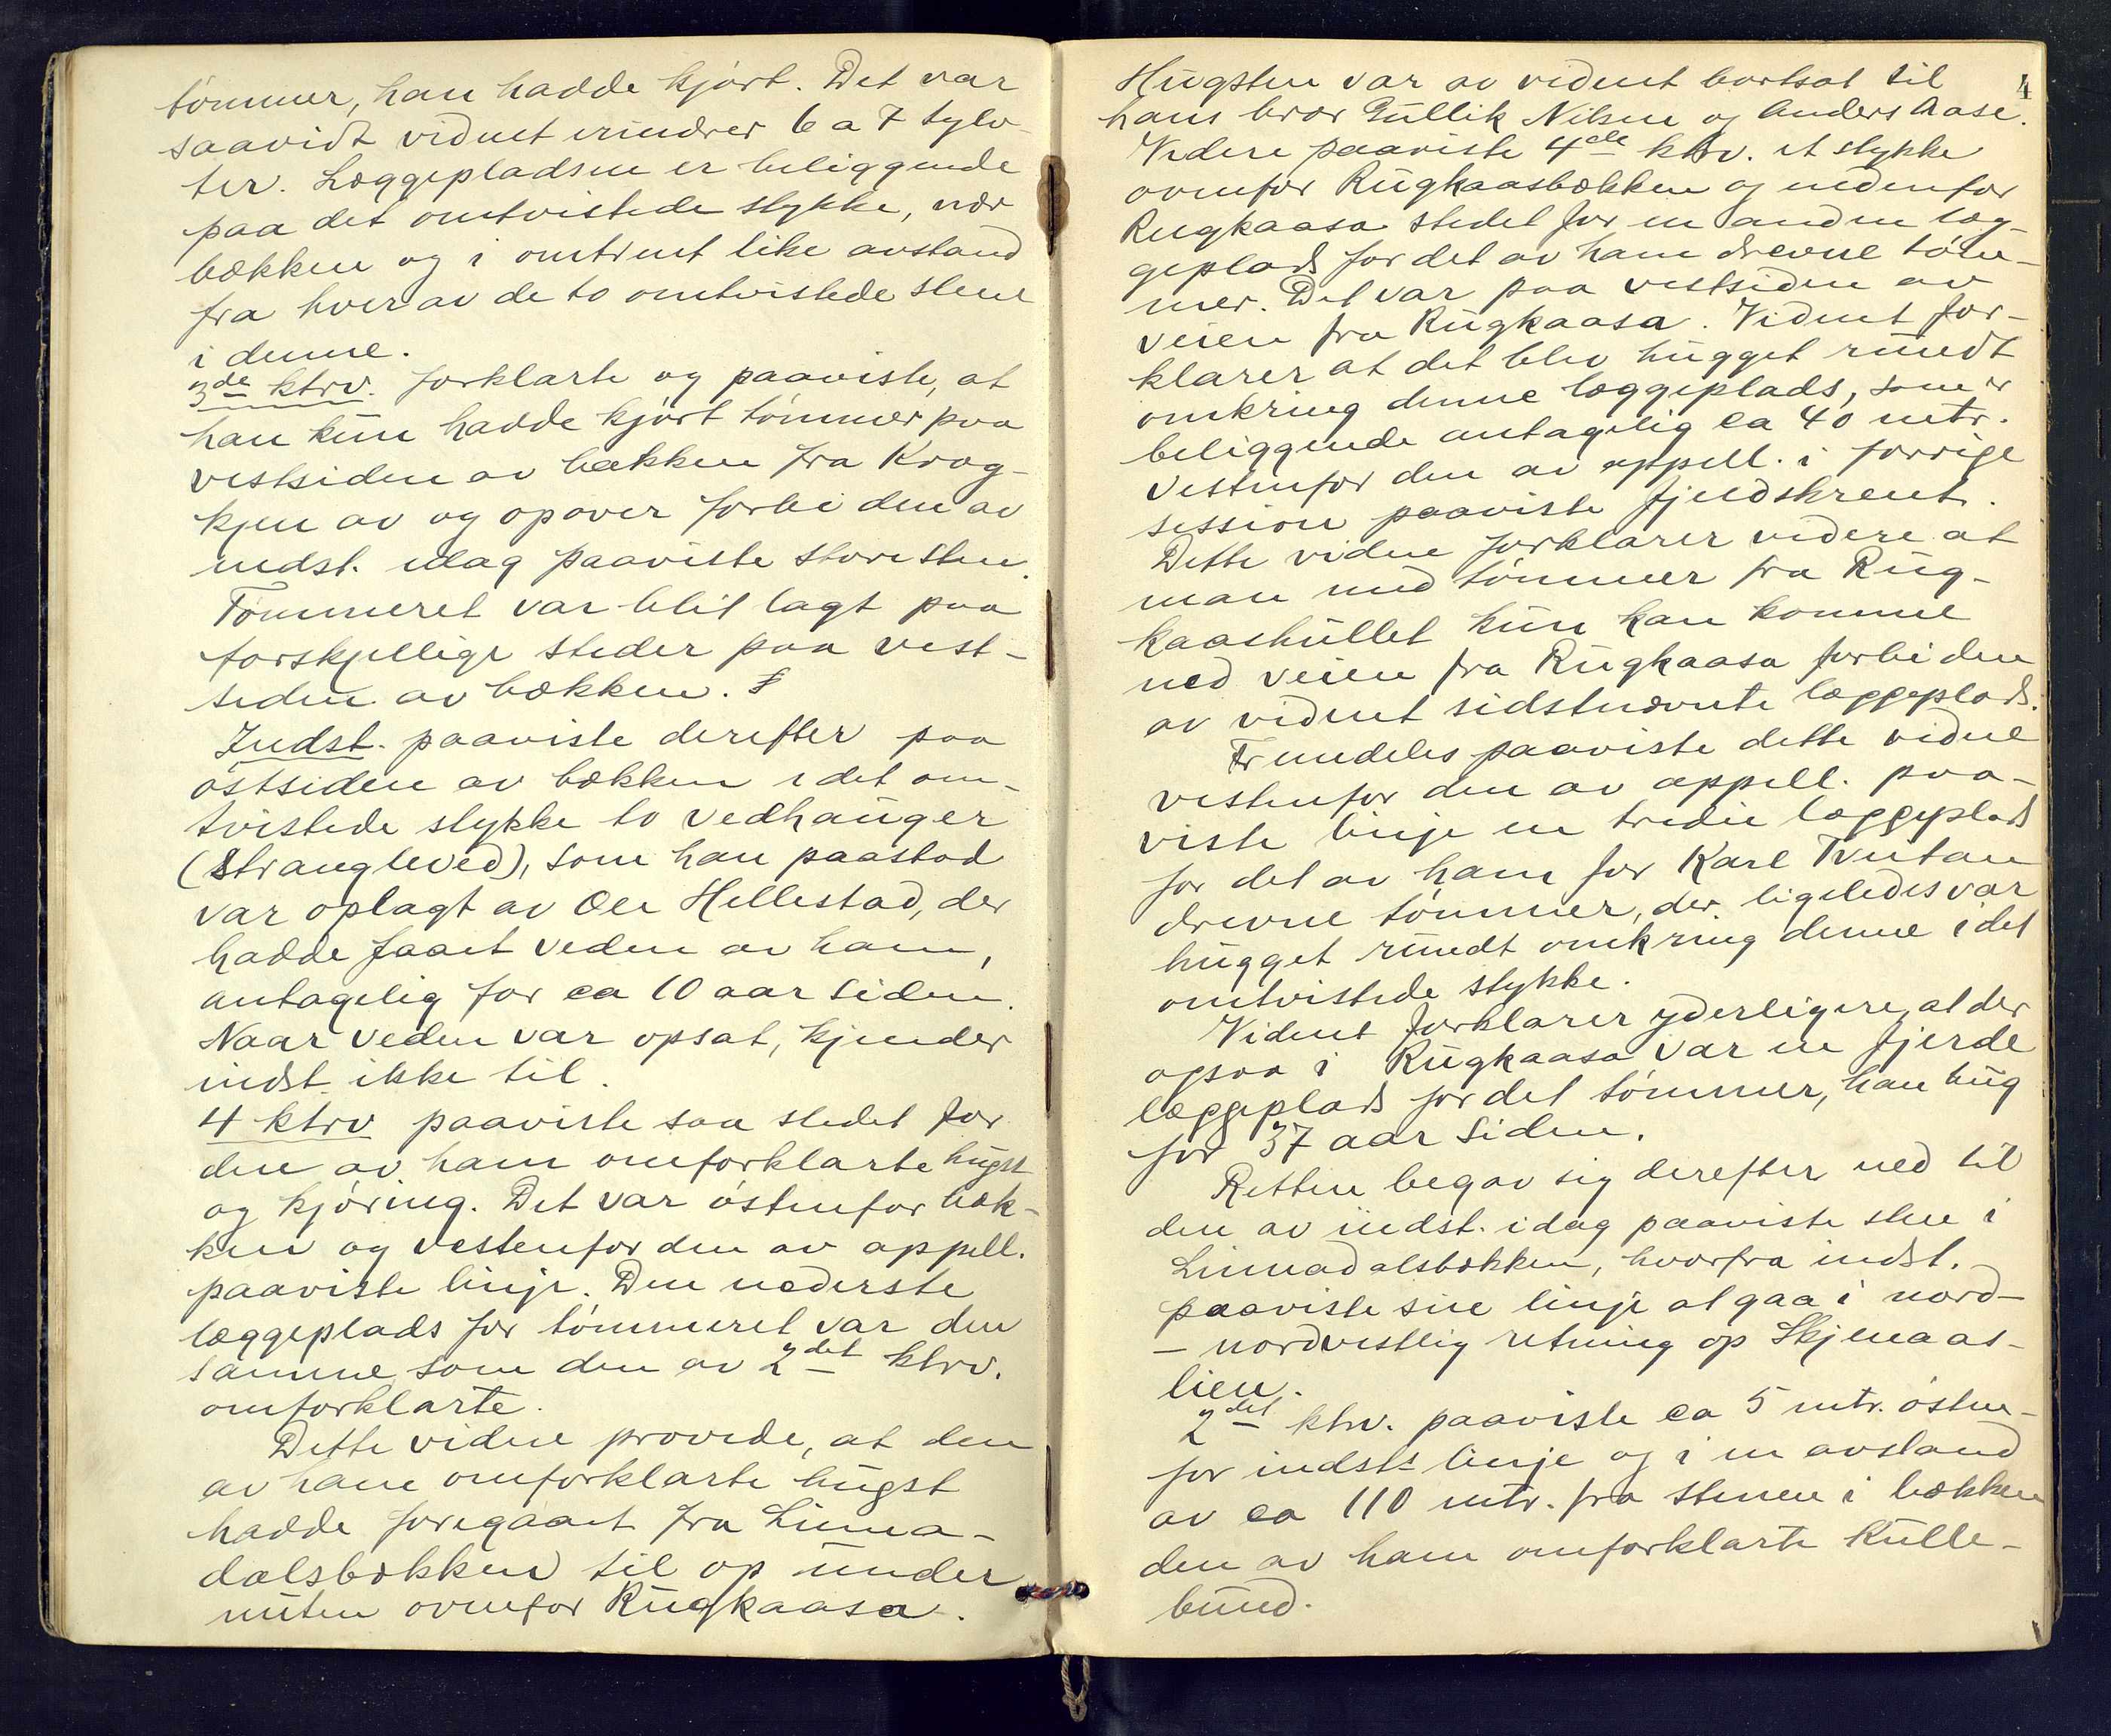 tömmer, han hadde kjört. Det var
saavidt vidnet erindrer 6 a 7 tylv-
ter. Læggepladsen er beliggende
paa det omtvistede stykke, nær
bækken og i omtrent like avstand
fra hver av de to omtvistede stene
i denne.
3de ktrv. forklarte og paaviste, at
han kun hadde kjört tömmer paa
vestsiden av bækken fra Krog-
kjen av og opover forbi den av
indst. idag paaviste store sten.
Tömmeret var blit lagt paa
forskjellige steder paa vest-
siden av bækken.
Indst. paaviste derefter paa
östsiden av bækken i det om-
tvistede stykke to vedhauger
(strangleved), som han paastod
var oplagt av Ole Hellestad, der
hadde faaet veden av ham,
antagelig for ca 10 aar siden.
Naar veden var opsat, kjender
indst. ikke til.
4 ktrv paaviste saa stedet for
den av ham omforklarte hugst
og kjöring. Det var östenfor bæk-
ken og vestenfor den av appell.
paaviste linje. Den nederste
læggeplads for tömmeret var den
samme som den av 2det ktrv.
omforklarte.
Dette vidne provede, at den
av ham omforklarte hugst
hadde foregaaet fra Linna-
dalsbækken til op under
nuten ovenfor Rugkaasa.
4
Hugsten var av vidnet bortsat til
hans bror Gullik Nilsen og Anders Aase.
Videre paaviste 4de ktrv. et stykke
ovenfor Rugkaasbækken og nedenfor
Rugkaasa stedet for en anden læg-
geplads for det av ham drevne töm-
mer. Det var paa vestsiden av
veien fra Rugkaasa. Vidnet for-
klarer at det blev hugget rundt
omkring denne læggeplads, som er
beliggende antagelig ca 40 mtr.
vestenfor den av appell. i forrige
session paaviste fjeldskrent.
Dette vidne forklarer videre at
man med tömmer fra Rug-
kaashullet kun kan komme
ned veien fra Rugkaasa forbi den
av vidnet sidstnævnte læggeplads.
Fremdeles paaviste dette vidne
vestenfor den av appell. paa-
viste linje en tredie læggeplads
for det av ham for Karl Tveitan
drevne tömmer, der ligeledes var
hugget rundt omkring denne i det
omtvistede stykke.
Vidnet forklarer yderligere, at der
ogsaa i Rugkaasa var en fjerde
læggeplads for det tömmer, han hug
for 37 aar siden.
Retten begav sig derefter ned til
den av indst. idag paaviste sten i
Linnadalsbækken, hvorfra indst.
paaviste sin linje at gaa i nord-
- nordvestlig retning op Skjenaas-
lien.
2det ktrv. paaviste ca 5 mtr. östen-
for indsts linje og i en avstand
av ca 110 mtr. fra stenen i bækken
den av ham omforklarte kulle-
bund.